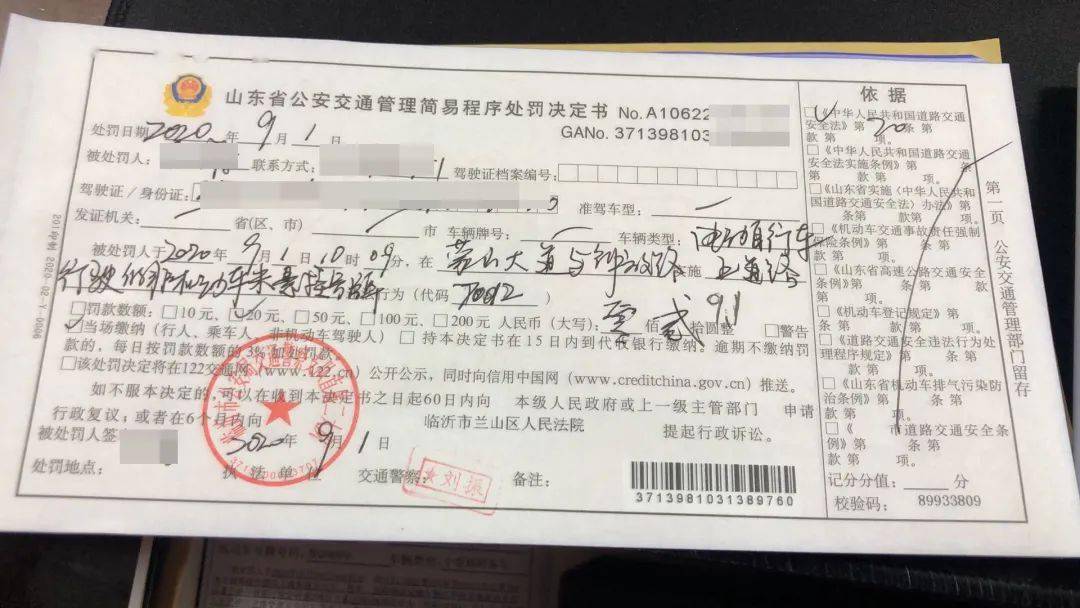 山东省公安交通管理简易程序处罚决定书 No.A10622
GANo. 371398103
处罚日期 2020年 9月 1日
被处罚人： 联系方式： 1 驾驶证档案编号：
驾驶证/身份证： 准驾车型：
发证机关： 省（区、市） 市 车辆牌号： 车辆类型：电动自行车
被处罚人于2020年 9月 1日 10时 09分，在 蒙山大道与 实施 上道路
行驶的非机动车未悬挂号牌 行为（代码 ）
□罚款数额：□10元、□20元、□50元、□100元、□200元 人民币（大写）：零 佰 贰 拾圆整 □警告
当场缴纳（行人、乘车人、非机动车驾驶人）□ 持本决定书在15日内到代收银行缴纳。逾期不缴纳罚
款的，每日按罚款数额的3%加处罚款
□该处罚决定将在122交通网（www.122.cn）公开公示，同时向信用中国网（www.creditchina.gov.cn）推送。
如不服本决定的，可以在收到本决定书之日起60日内向 本级人民政府或上一级主管部门 申请
行政复议；或者在6个月内向 临沂市兰山区人民法院 提起行政诉讼。
被处罚人签 2020年 9月 1日
处罚地点： 执法单位 交通警察： 刘振 备注：
3713981031389760
依据
□《中华人民共和国道路交通
安全法》第 条 第
款 第 项。
□《中华人民共和国道路交通
安全法实施条例》第 条
第 款 第 项。
□《山东省实施〈中华人民共和
国道路交通安全法〉办法》第
条第 款第 项。
□《机动车交通事故责任强制
保险条例》第 条第 款。
□《山东省高速公路交通安全
条例》第 条 第 款。
□《机动车登记规定》第
条 第 款第 项。
□《道路交通安全违法行为处
理程序规定》第 条第 款。
□《山东省机动车排气污染防
治条例》第 条 第 款。
□《 市道路交通安全条
例》第 条 第
款 第 项。
记分分值： 分
校验码： 89933809
第一页 公安交通管理部门留存